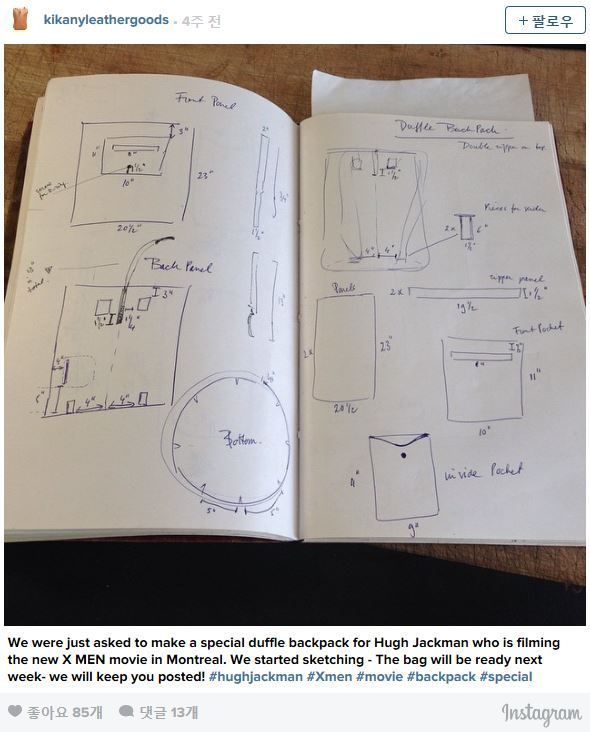 kikanyleathergoods • 4주 전
+ 팔로우
Front Panel
3"
11"
10"
23"
20½"
2"
1½"
Back Panel
total
3"
1½"
4"
4"
4"
Bottom
5"
5"
Duffle BackPack
Double zipper on top
1½"
4"
4"
Pieces for
2x
6"
1½"
zipper panel
2x
1½"
19½
Panels
2x
23"
20½
Front Pocket
11"
10"
inside Pocket
9"
We were just asked to make a special duffle backpack for Hugh Jackman who is filming
the new X MEN movie in Montreal. We started sketching - The bag will be ready next
week- we will keep you posted! #hughjackman #Xmen #movie #backpack #special
좋아요 85개 댓글 13개
Instagram